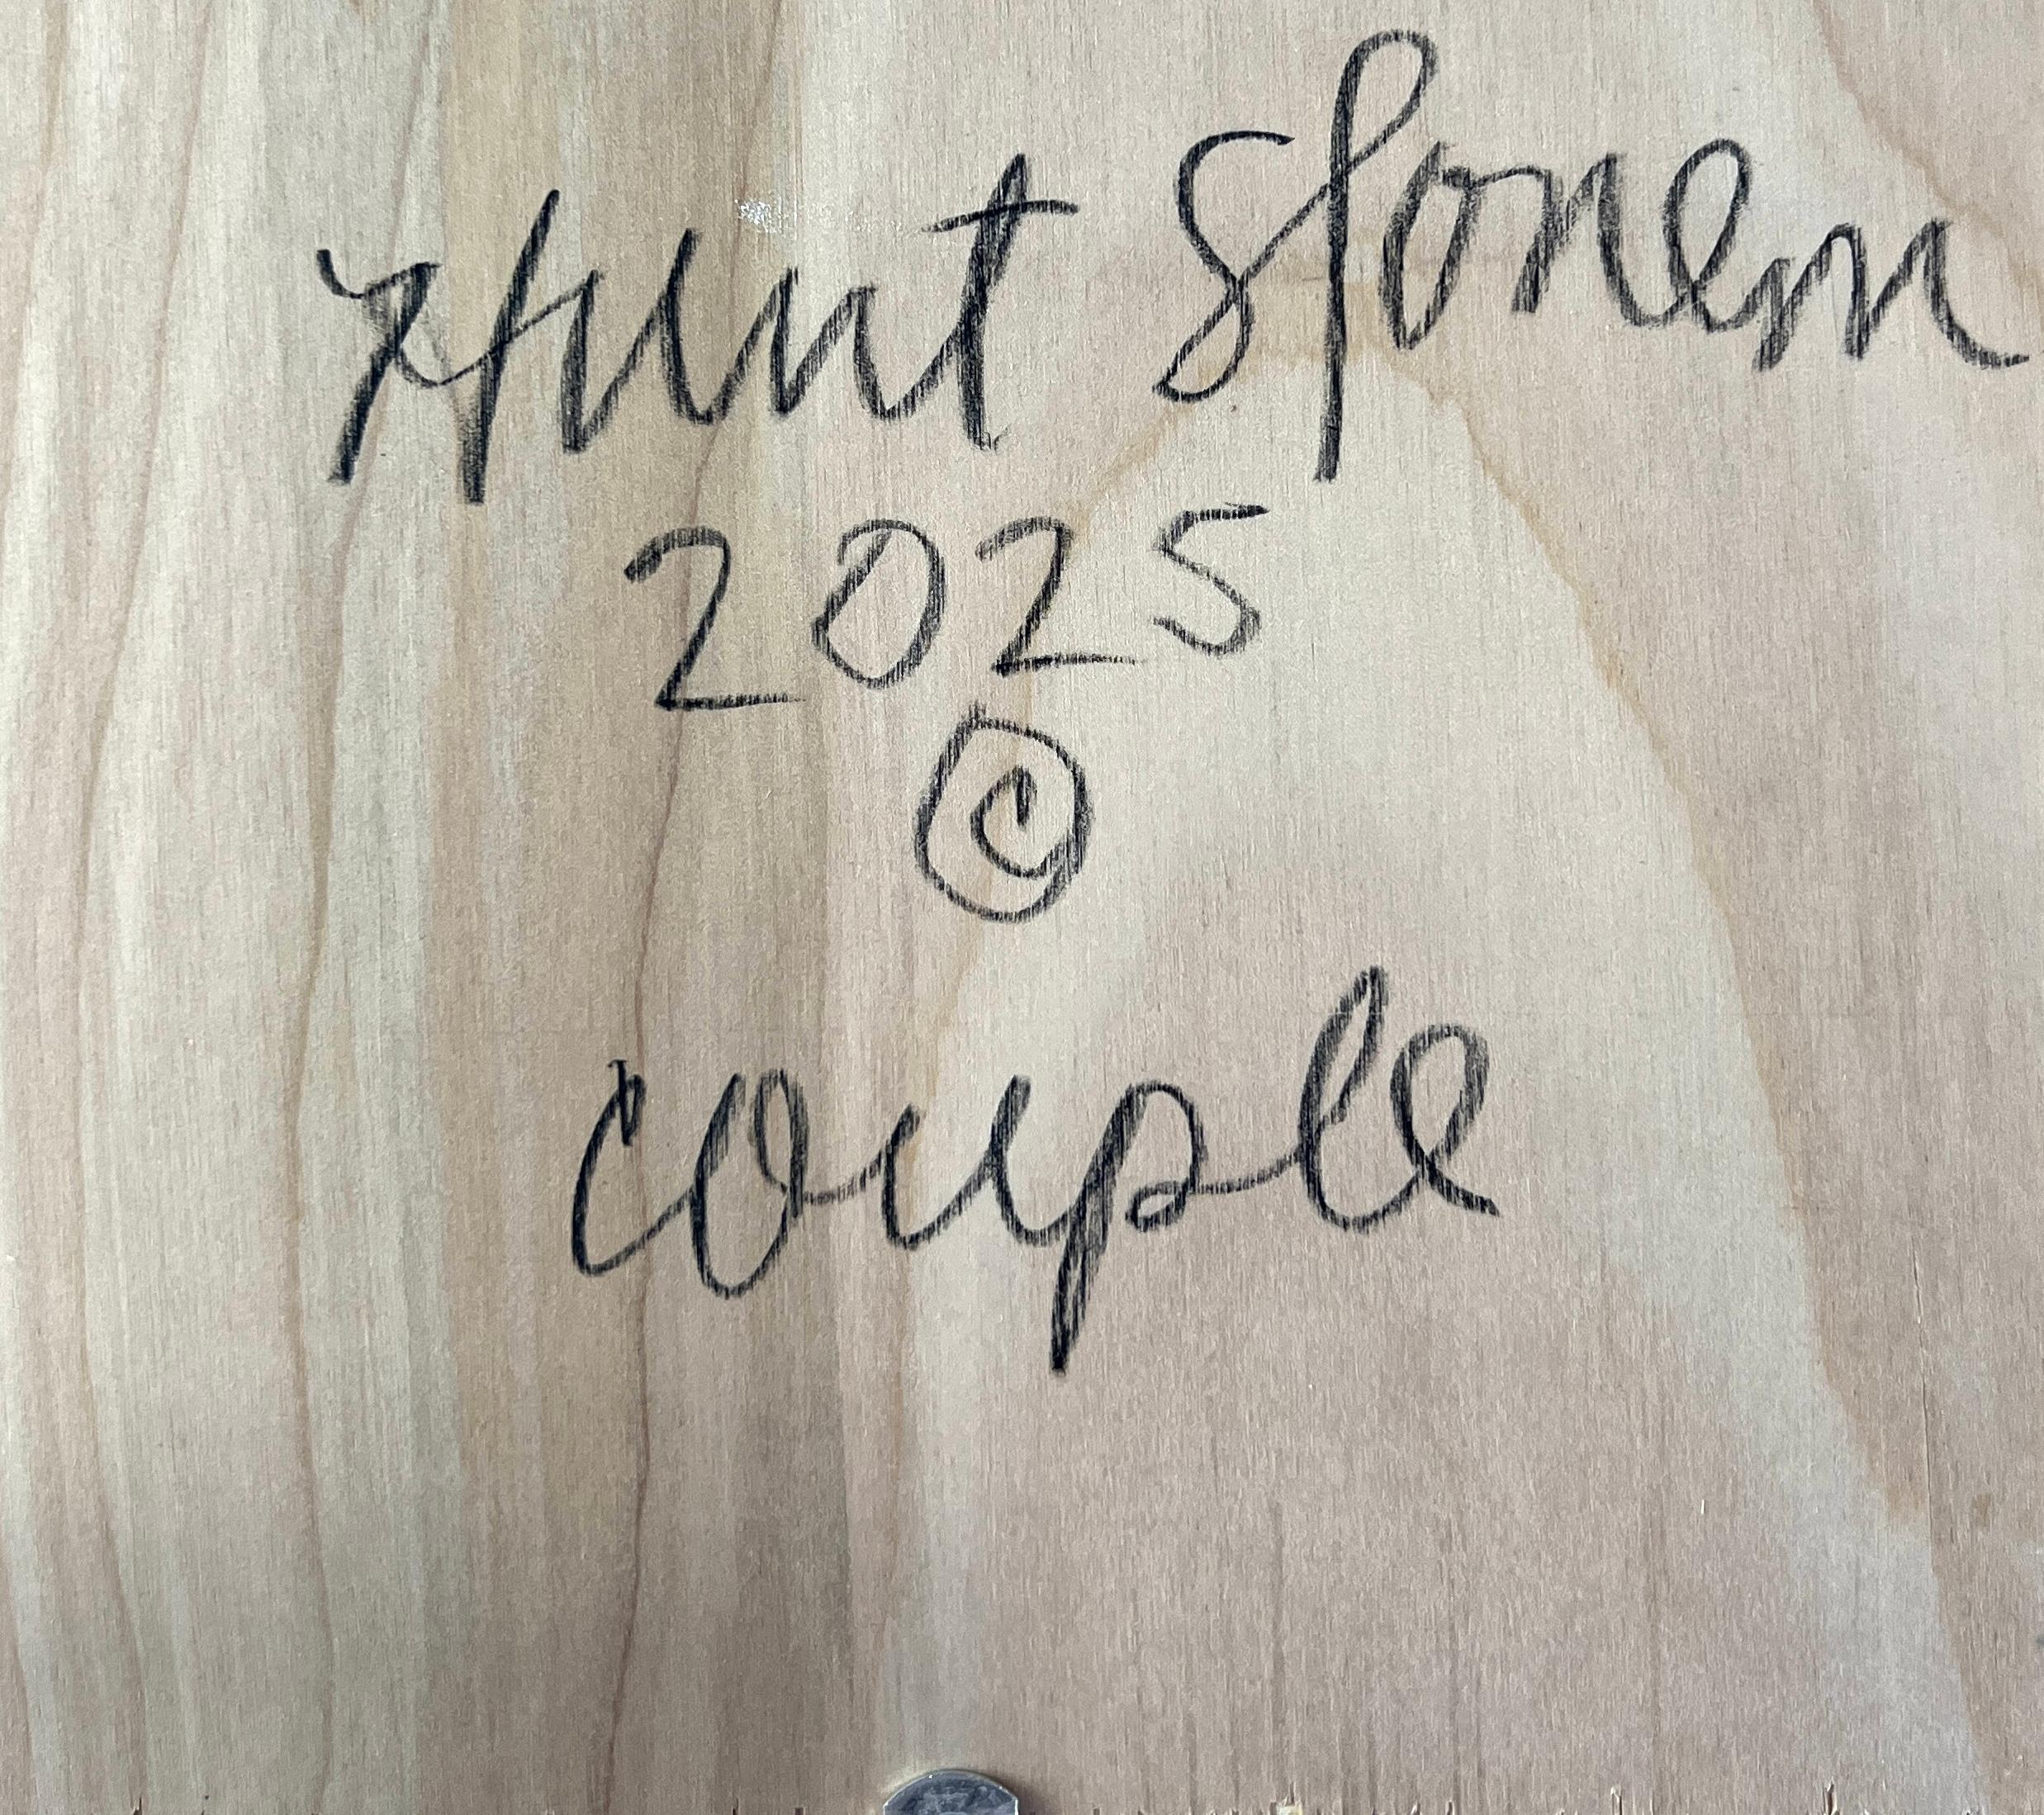 Hunt Slonem
2025
©
couple